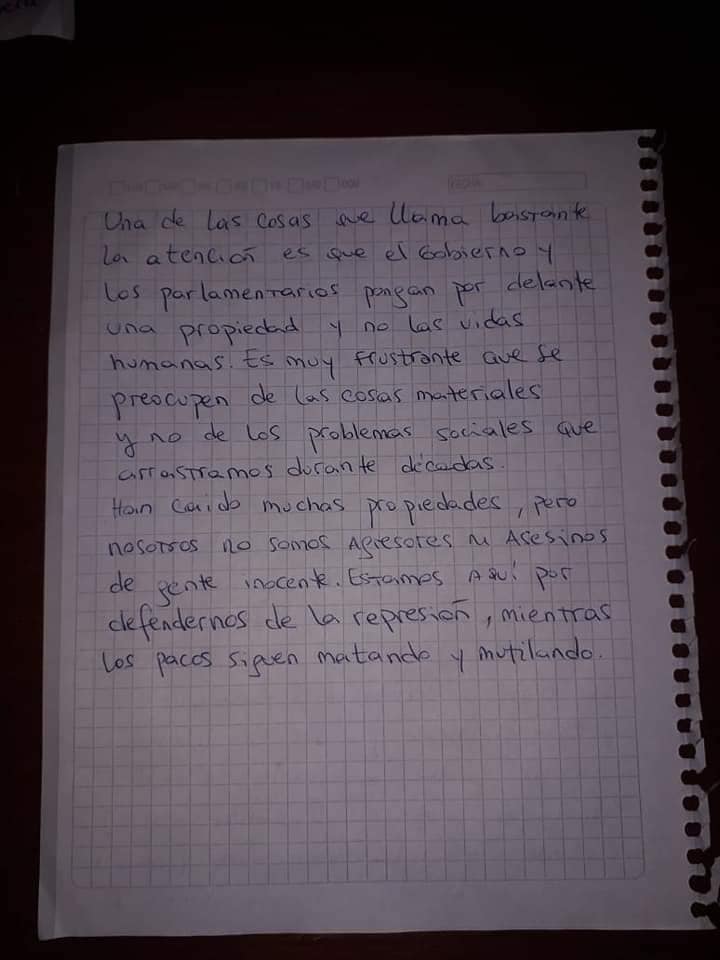 Una de las cosas que llama bastante
la atención es que el Gobierno y
los parlamentarios pongan por delante
una propiedad y no las vidas
humanas. Es muy frustrante que se
preocupen de las cosas materiales
y no de los problemas sociales que
arrastramos durante décadas.
Han caido muchas propiedades, pero
nosotros no somos Agresores ni Asesinos
de gente inocente. Estamos Aquí por
defendernos de la represión, mientras
los pacos siguen matando y mutilando.